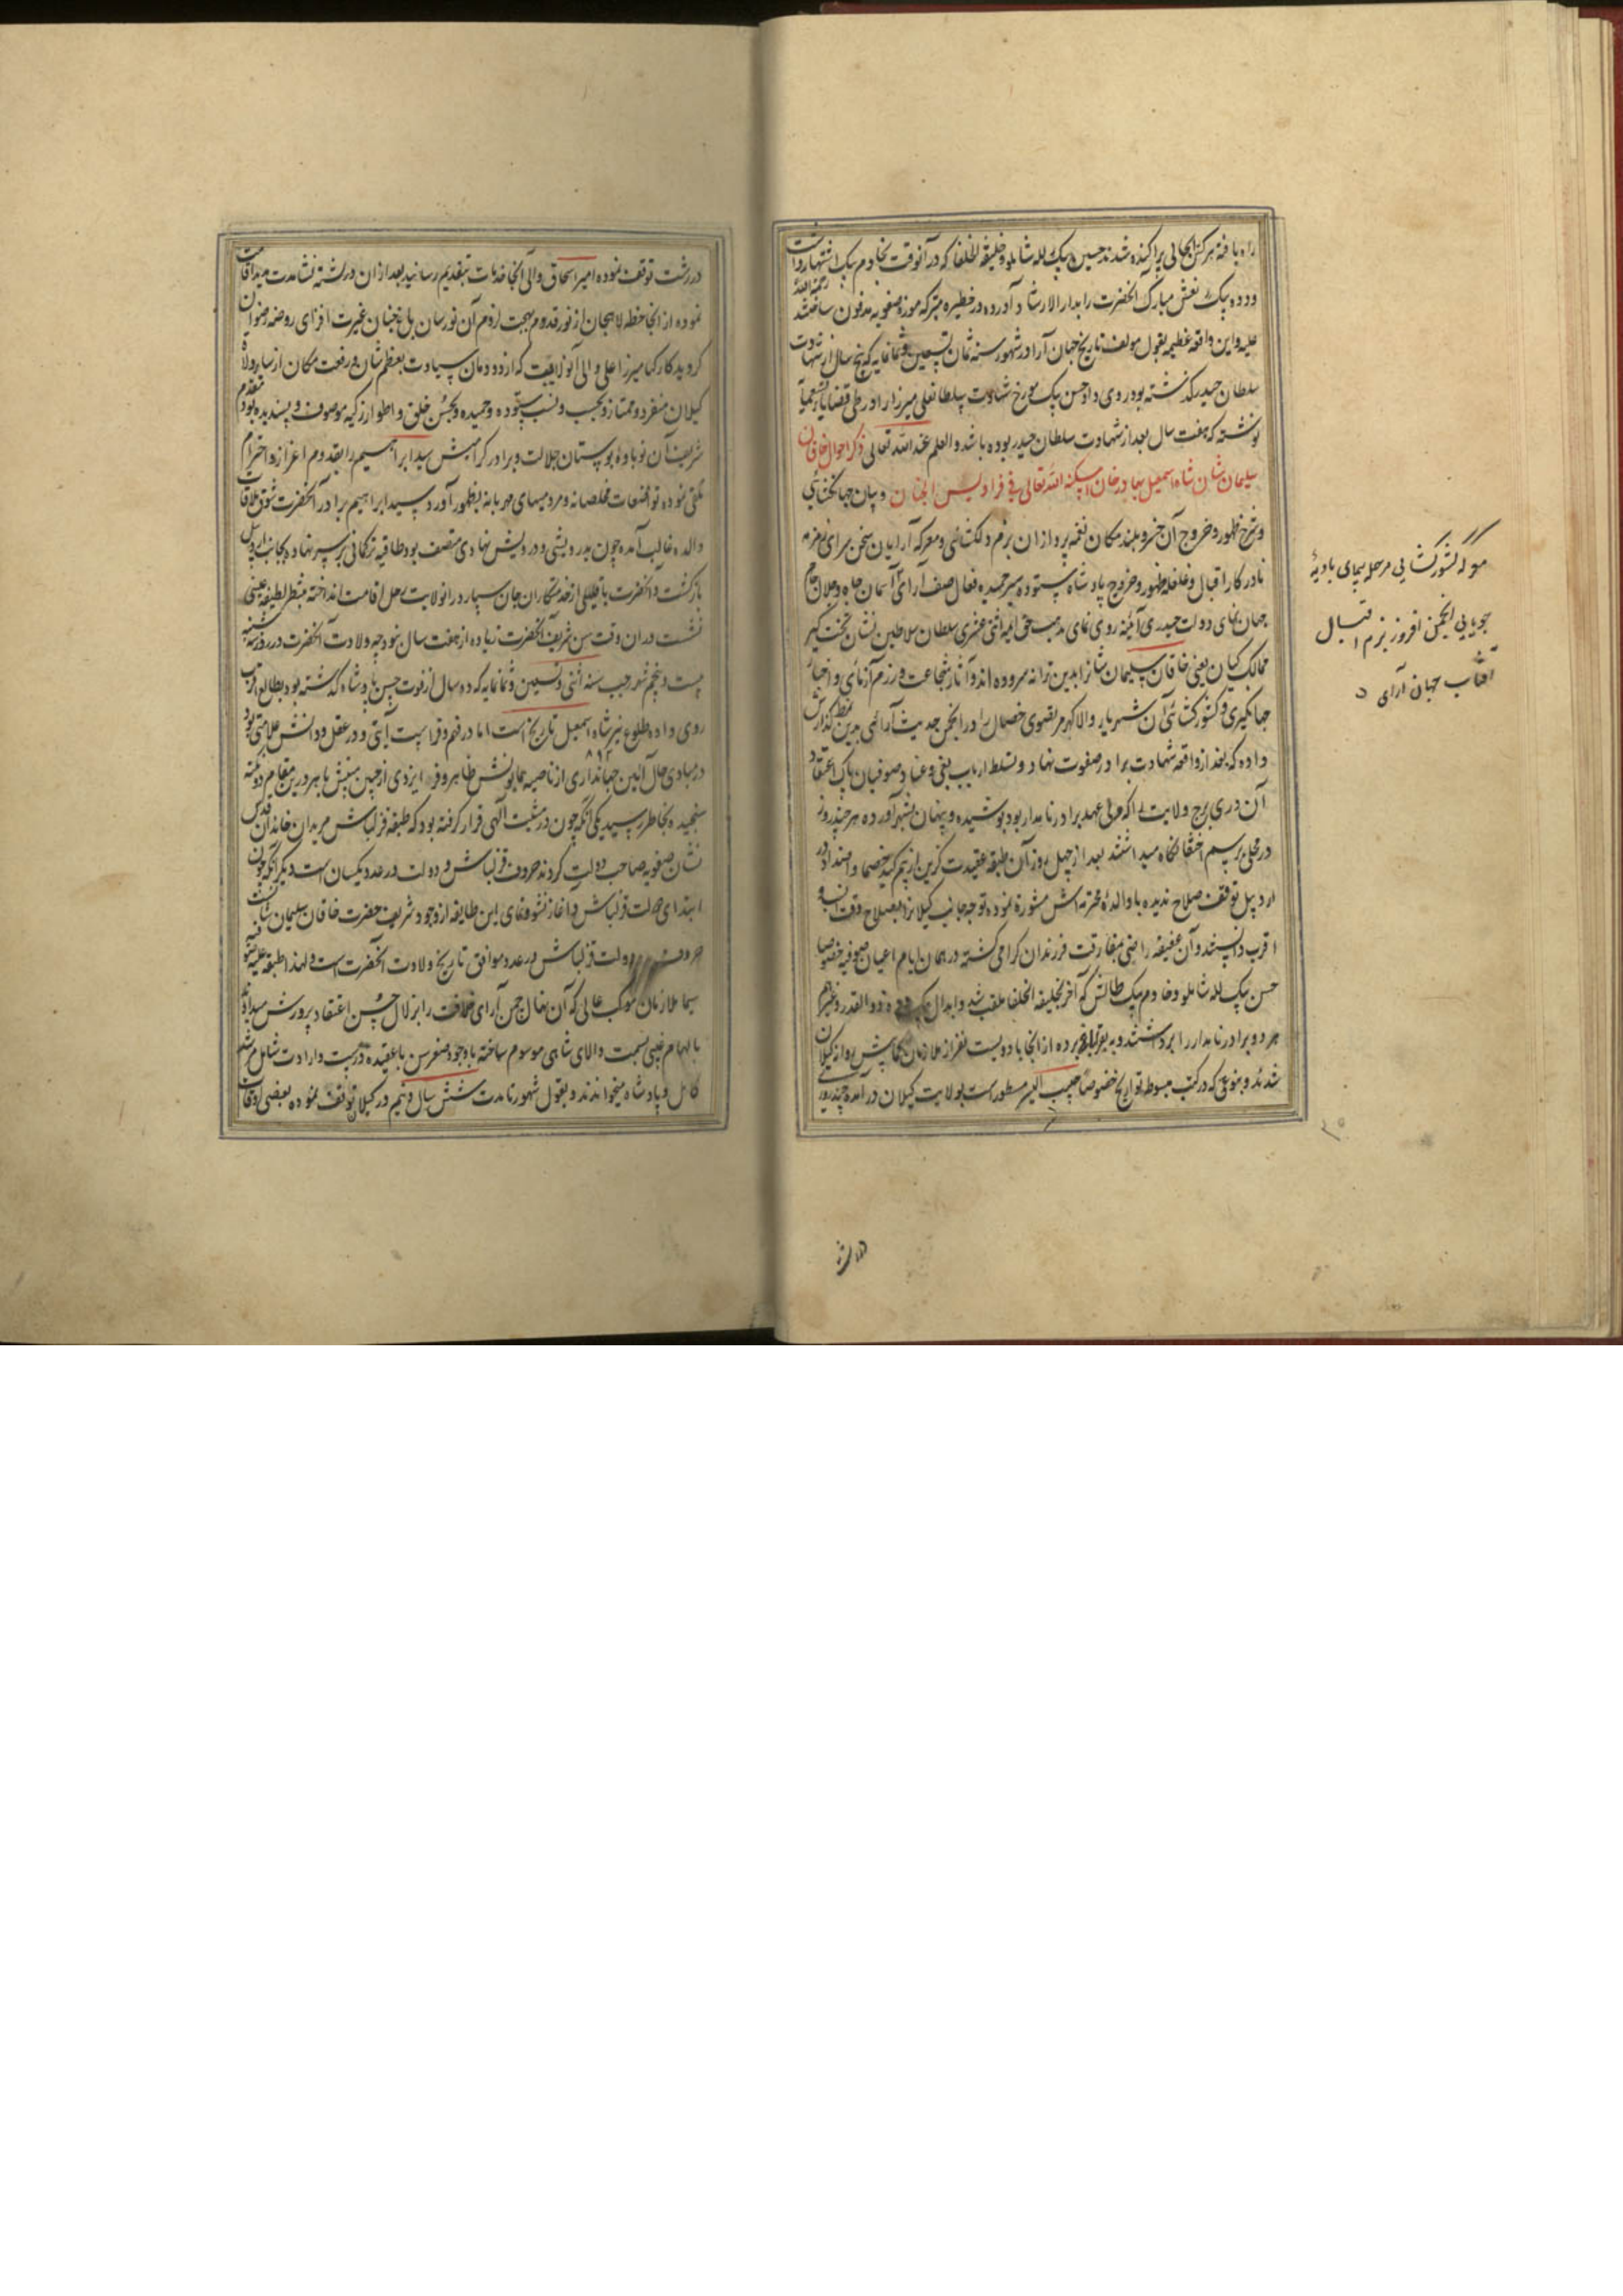 راه یافته هرکس بجائی پراکنده شدند حسین بیک لله شاملو و خلیفة الخلفا که در آنوقت بخادم بیک اشتهار داشت
و دده بیک نعش مبارک آنحضرت را بدار الارشاد آورده در حظیره متبرکه موره صفویه مدفون ساختند رحمة الله
علیه و این واقعه عظیمه بقول مولف تاریخ جهان آرا در شهور سنه ثمان و تسعین و ثمانمایه که پنج سال از شهادت
سلطان حیدر گذشته بود روی داد حسن بیک مورخ شهادت سلطانعلی میرزا را در طی قضایای
نوشته که هفت سال بعد از شهادت سلطان حیدر بوده باشد والعلم عند الله تعالی ذکر احوال خاقان
سلیمان شان شاه اسمعیل بهادر خان اسکنه الله تعالی فی فرادیس الجنان و بیان جهانگشائی
و شرح ظهور و خروج آن خسرو بلند مکان نغمه پردازان بزم دلگشائی و معرکه آرایان سخن سرای زمزمه
نادر کار اقبال و غلغله ظهور و خروج پادشاه ستوده سیر حمیده فعال صف آرای آسمان جاه و جلال جام
جهان نمای دولت حیدری آئینه روی نمای مذهب حق ائمه اثنی عشری سلطان سلاطین نشان تخت گیر
ممالک کیان یعنی خاقان سلیمان شانرا بدین ترانه سروده اند و آثار شجاعت و رزم آزمائی و اخبار
جهانگیری و کشورگشائی آن شهریار والا گهر مرتضوی خصال را در انجمن حدیث آرائی بدین نمط گذارش
داده که بعد از واقعه شهادت برادر صفوت نهاد و تسلط ارباب بغی و عناد صوفیان پاک اعتقاد
آن دری برج ولایت را که ولی عهد برادر نامدار بود پوشیده و پنهان بشهر آورده هر چند روز
در محلی برسم اختفا نگاه میداشتند بعد از چهل روز آن طبقه عقیدت گزین از بیم کید خصما و اضداد در
اردبیل توقف صلاح ندیده با والده محترمه اش مشورة نموده توجه بجانب گیلانرا بصلاح وقت انسب و
اقرب دانستند و آن عفیفه راضی بمفارقت فرزندان گرامی گشته در همان ایام اعیان صوفیه خصوصا
حسن بیک لله شاملو و خادم بیک طالش که آخر بخلیفة الخلفا ملقب شد و ابدال بیک دده ذوالقدر و غیرهم
هر دو برادر نامدار را برداشتند و به برده از آنجا با دویست نفر از ملازمان روانه گیلان
شدند و بنوعی که در کتب مبسوطه تواریخ خصوصا حبیب السیر مسطور است بولایت گیلان در آمده چند روزی
معرکه کشورگشایی مرحله پیمای بادیهٔ
جویایی انجمن افروز بزم اقبال
آفتاب جهان آرای
در رشت
در رشت توقف نموده امیر اسحاق والی آنجا خدمات بتقدیم رسانید بعد از آن در رشته نشا مدت میدا اقامت
نموده از آنجا خطه لاهیجان از نور قدوم بهجت لزوم آن نورسان باغ جنان غیرت افزای روضه رضوان
گردید کارکیا میرزا علی والی آنولایت که از دودمان سیادت بعظم شان و رفعت مکان از سایر ولاة
گیلان منفرد و ممتاز و بحسب و نسب ستوده و حمیده و بحسن خلق و اطوار زکیه موصوف و پسندیده بود مقدم
شریف آن نوباوه بوستان جلالت و برادر گرامیش سید ابراهیم را بقدوم اعزاز و احترام
تلقی نموده تواضعات مخلصانه و مردمیهای مهربانه بظهور آورد سید ابراهیم برادر آنحضرت شوق ملاقات
والده غالب آمده چون بدرویشی و درویش نهادی متصف بود طاقیه ترکمانی بر سر نهاده بجانب اردبیل
بازگشت و آنحضرت با قلیلی از خدمتکاران جان سپار در آنولایت رحل اقامت انداخته منتظر لطیفه غیبی
نشست در آن وقت سن شریف آنحضرت زیاده از هفت سال نبود چه ولادت آنحضرت در روز سه شنبه
بیست و پنجم شهر رجب سنه اثنی و تسعین و ثمانمایه که ده سال از فوت حسن پادشاه گذشته بود بطالع عقرب
روی داده طلوع نیر شاه اسمعیل تاریخ است اما در فهم و فراست آیتی و در عقل و دانش علامتی بود
۸۹۲
در مبادی حال آئین جهانداری از ناصیه همایونش ظاهر و فر ایزدی از جبین مبینش باهر درین مقام دو نکته
سنجیده بخاطر رسید یکی آنکه چون در مشیت آلهی قرار گرفته بود که طبقه قزلباش مریدان خاندان قدس
نشان صفویه صاحب دولت گردند حروف قزلباش و دولت در عدد یکسان است دیگر آنکه چون
ابتدای دولت قزلباش و آغاز نشو و نمای این طایفه از وجود شریف حضرت خاقان سلیمان شانست
حروف دولت قزلباش در عدد موافق تاریخ ولادت آنحضرت است و لهذا طبقه علیه صوفیه
سیما ملازمان موکب عالی که آن نهال چمن آرای خلافت را بزلال حسن اعتقاد پرورش میدادند
بالهام غیبی بسمت والای شاهی موسوم ساخته با وجود صغر سن با عقیده درست و ارادت شامل مرشد
کامل و پادشاه میخواندند و بقول مشهور تا مدت شش سال و نیم در گیلان توقف نموده بعضی اوقات